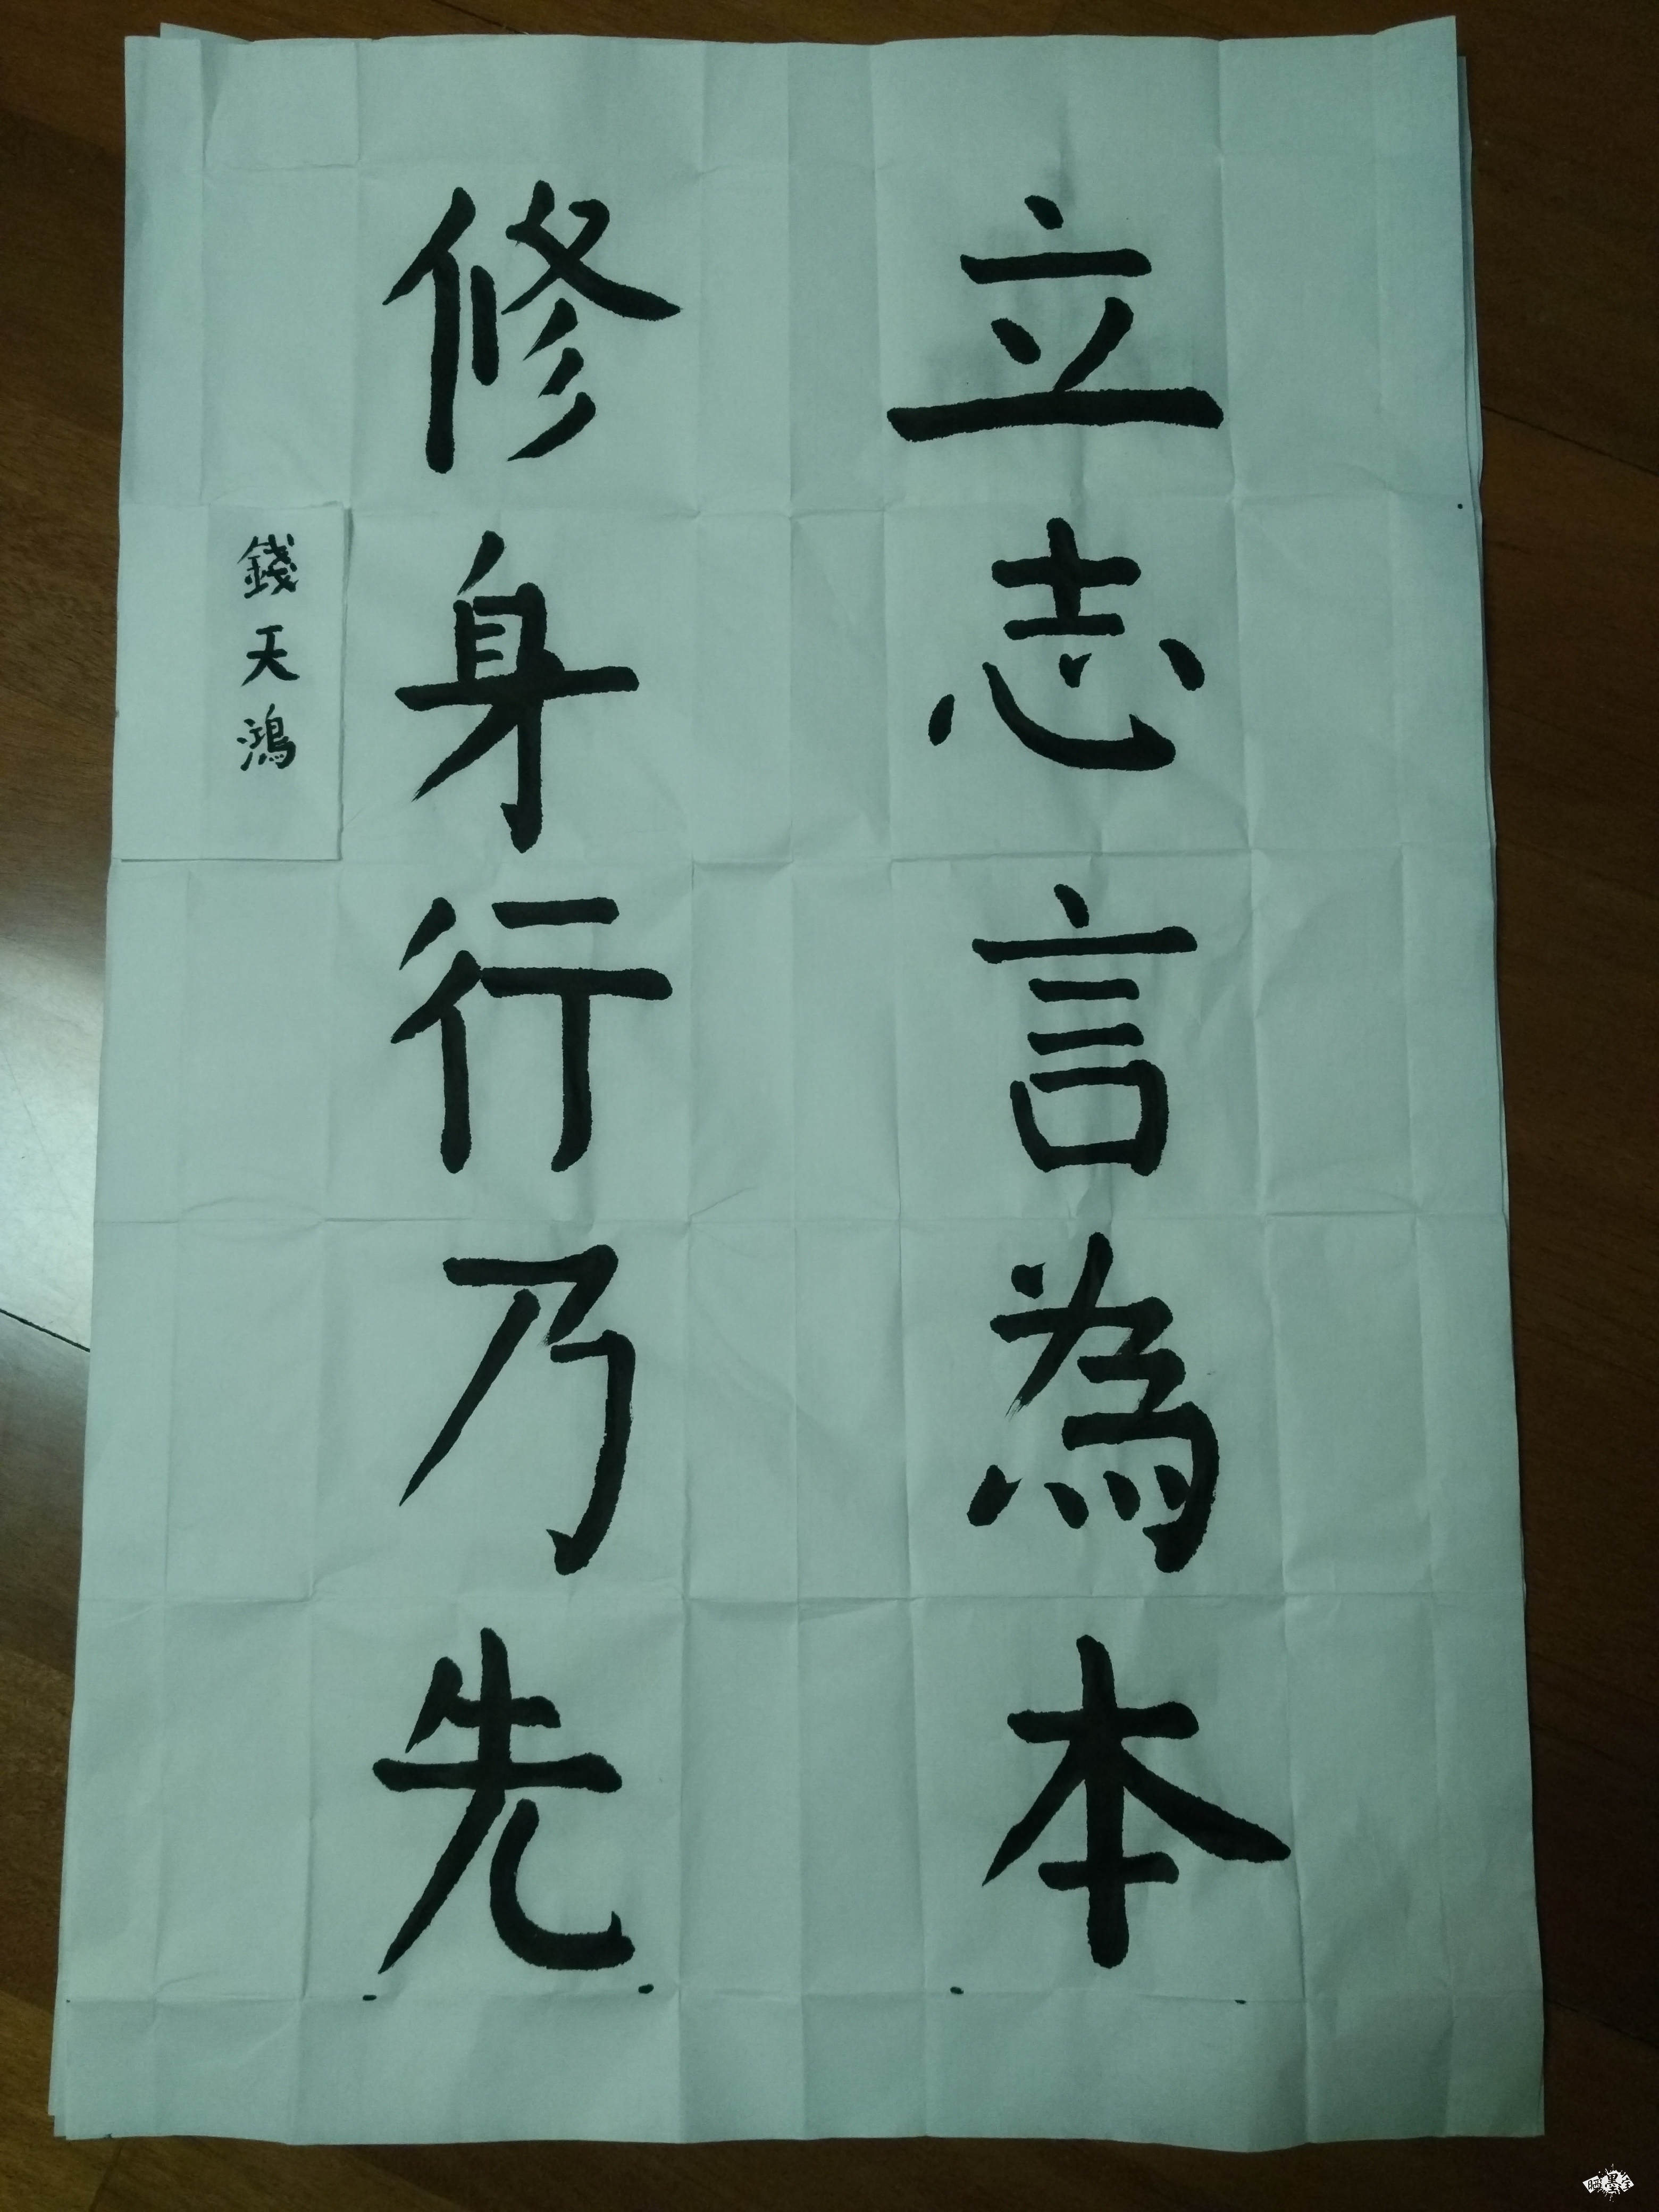 立志言為本
修身行乃先
錢天鴻